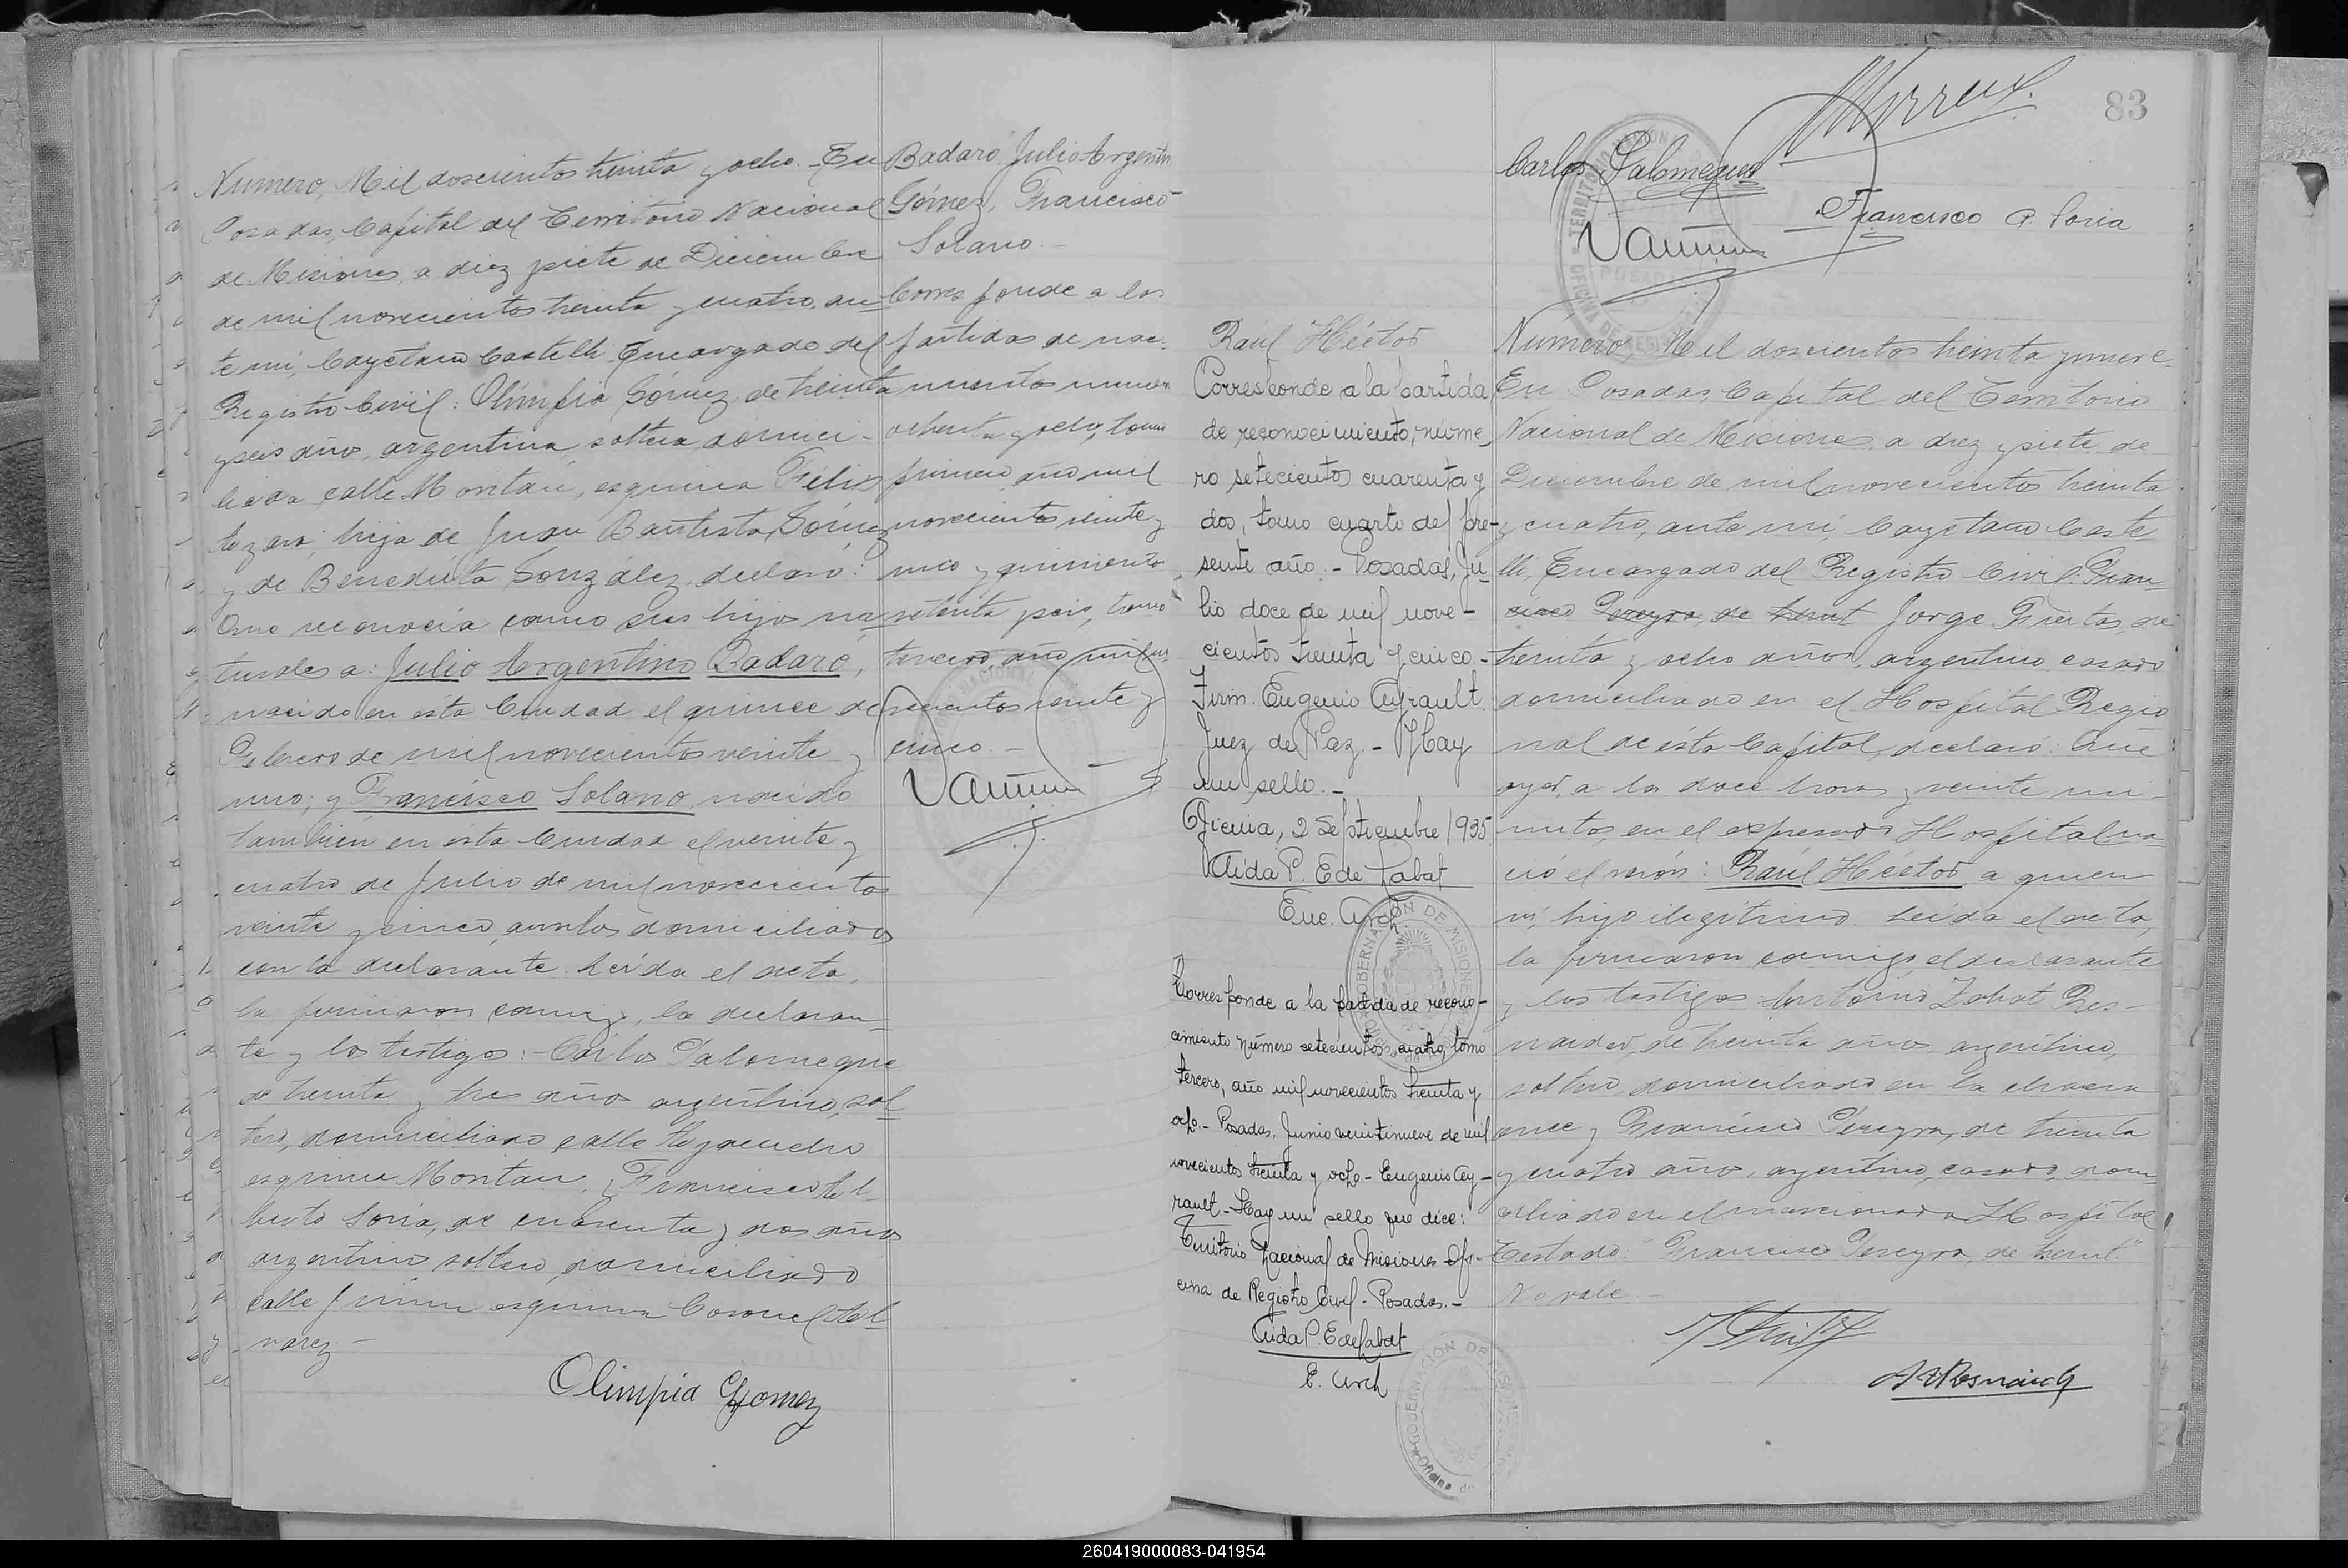 Numero, Mil doscientos treinta y ocho. En
Posadas, Capital del Territorio Nacional
de Misiones, a diez y siete de Diciembre
de mil novecientos treinta y cuatro, an-
te mi, Cayetano Castelli Encargado del
Registro Civil: Olimpia Gómez de treinta
y seis años, argentina, soltera, domici-
liada calle Montau, esquina Felix
de Azara, hija de Juan Bautista Gómez
y de Benedicta González, declaró:
Que reconocía como sus hijos na-
turales a: Julio Argentino Badaró,
nacido en esta Ciudad el quince de
Febrero de mil novecientos veinte y
uno; y Francisco Solano nacido
tambien en esta Ciudad el veinte y
cuatro de Julio de mil novecientos
veinte y cinco, ambos domiciliados
con la declarante. Leída el acta,
la firmaron conmigo, la declaran-
te y los testigos: - Carlos Palomeque
de treinta y tres años argentino, sol-
tero, domiciliado calle Ayacucho
esquina Montau, y Francisco Al-
berto Soria, de cuarenta y dos años
argentino soltero, domiciliado
calle Junin esquina Coronel Al-
varez -
Olimpia Gomez
Badaro, Julio Argentin
Gómez, Francisco
Solano. -
Corresponde a las
partidas de naci-
mientos numero
ochenta y ocho, tomo
primero año mil
novecientos veinte y
uno y quinientos
setenta y seis, tomo
tercero, año mil no
vecientos veinte y
cinco. -
83
Carlos Palomeque
Francisco A. Soria
Raúl Héctor
Corresponde a la partida
de reconocimiento, núme-
ro setecientos cuarenta y
dos, tomo cuarto del pre-
sente año. - Posadas, Ju-
lio doce de mil nove-
cientos treinta y cinco. -
Firm. Eugenio Ayrault
Juez de Paz. - Hay
un sello. -
Oficina, 2 Septiembre 1935.
Aida P. E de Labat
Enc. Arch.
GOBERNACIÓN DE MISIONES
Corresponde a la partida de recono-
cimiento número setecientos cuatro, tomo
tercero, año mil novecientos treinta y
ocho - Posadas, Junio veintinueve de mil
novecientos treinta y ocho - Eugenio Ay-
rault - Hay un sello que dice:
Territorio Nacional de Misiones Ofi-
cina de Registro Civil - Posadas. -
Aida P. E de Labat
E. Arch
Numero, Mil doscientos treinta y nueve
En Posadas, Capital del Territorio
Nacional de Misiones, a diez y siete de
Diciembre de mil novecientos treinta
y cuatro, ante mi, Cayetano Caste
lli, Encargado del Registro Civil: Fran-
cisco Pereyra, de treint Jorge Fuertas, de
treinta y ocho años, argentino casado
domiciliado en el Hospital Regio
nal de ésta Capital, declaró: Que
ayer, a las doce horas y veinte mi-
nutos, en el expresado Hospital, na-
ció el varón: Raúl Héctor, a quien
vi, hijo ilegítimo. Leída el acta,
la firmaron conmigo, el declarante
y los testigos Antonio Zabat Res-
naider, de treinta años argentino,
soltero, domiciliado en la chacra
once y Francisco Pereyra, de treinta
y cuatro años, argentino, casado, domi
ciliado en el mencionado Hospital
Testado: "Francisco Pereyra, de treint."
No vale. -